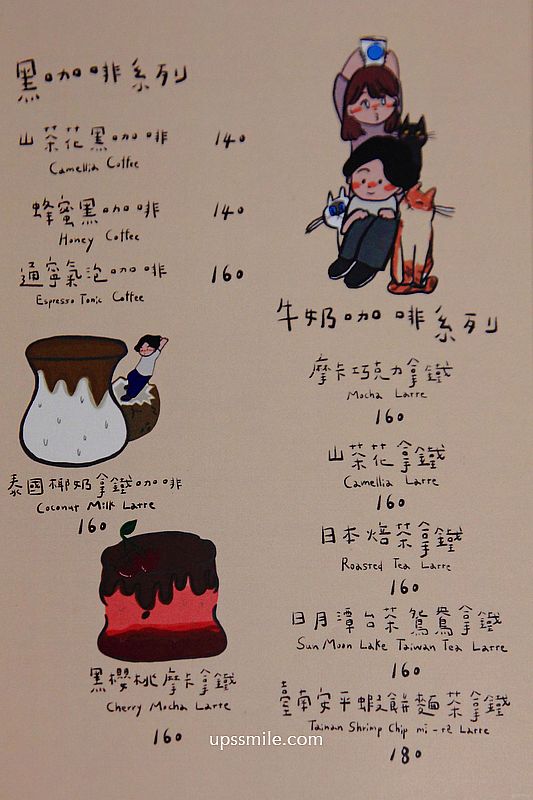 黑咖啡系列
山茶花黑咖啡 140
Camellia Coffee
蜂蜜黑咖啡 140
Honey Coffee
通寧氣泡咖啡 160
Espresso Tonic Coffee
泰國椰奶拿鐵咖啡
Coconut Milk Latte
160
黑櫻桃摩卡拿鐵
Cherry Mocha Latte
160
牛奶咖啡系列
摩卡巧克力拿鐵
Mocha Latte
160
山茶花拿鐵
Camellia Latte
160
日本焙茶拿鐵
Roasted Tea Latte
160
日月潭台茶鴛鴦拿鐵
Sun Moon Lake Taiwan Tea Latte
160
臺南安平蝦餅麵茶拿鐵
Tainan Shrimp Chip mi-té Latte
180
upssmile.com